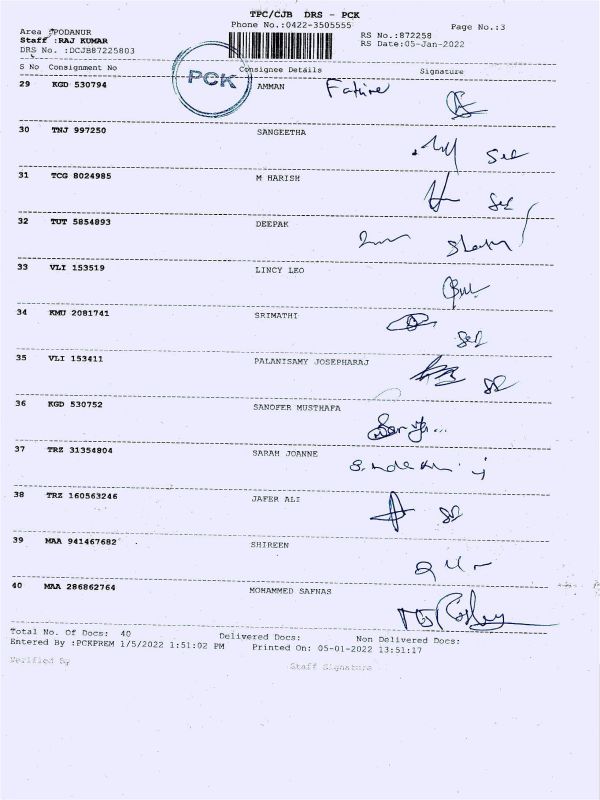 TPC/CJB DRS - PCK
Phone No.:0422-3505555 Page No.:3
Area :PODANUR
Staff :RAJ KUMAR RS No.:872258
DRS No. :DCJB87225803 RS Date:05-Jan-2022
S No Consignment No Consignee Details Signature
PCK
29 KGD 530794 AMMAN Father
30 TNJ 997250 SANGEETHA
31 TCG 8024985 M HARISH
32 TUT 5854893 DEEPAK
33 VLI 153519 LINCY LEO
34 KMU 2081741 SRIMATHI
35 VLI 153411 PALANISAMY JOSEPHARAJ
36 KGD 530752 SANOFER MUSTHAFA
37 TRZ 31354804 SARAH JOANNE
38 TRZ 160563246 JAFER ALI
39 MAA 941467682 SHIREEN
40 MAA 286862764 MOHAMMED SAFNAS
Total No. Of Docs: 40 Delivered Docs: Non Delivered Docs:
Entered By :PCKPREM 1/5/2022 1:51:02 PM Printed On: 05-01-2022 13:51:17
Verified By Staff Signature